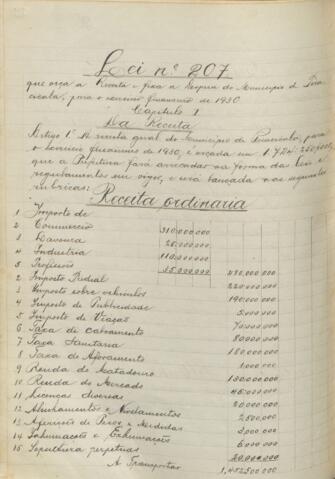 Lei nº 207
que orça a Receita e fixa a Despesa do Municipio de Pira
cicaba, para o exercicio financeiro de 1930
Capitulo I
Da Receita
Artigo 1º A receita geral do Municipio de Piracicaba, para
o exercicio financeiro de 1930, é orçada em 1.724:
que a Prefeitura fará arrecadar na forma das leis e
regulamentos em vigor, e será lançada nas seguintes
rubricas:
Receita ordinaria
1 Imposto de
2 Commercio 310,000.000
3 Lavoura 25,000.000
4 Industria 110,000.000
5 Profissões
2 Imposto Predial 220,000.000
3 Imposto sobre vehiculos 190,000.000
4 Imposto de Publicidade 5,000.000
5 Imposto de Viação 70,000.000
6 Taxa de Calçamento 80,000.000
7 Taxa Sanitaria 180,000.000
8 Taxa de Aforamento 1,000.000
9 Renda do Matadouro
10 Renda do Mercado
11 Licenças diversas
12 Alinhamentos e Nivelamentos 20,000.000
13 Aferições de Pesos e Medidas
14 Inhumações e Exhumações
15 Sepulturas perpetuas 20,000.000
A Transportar 1,452,500.000